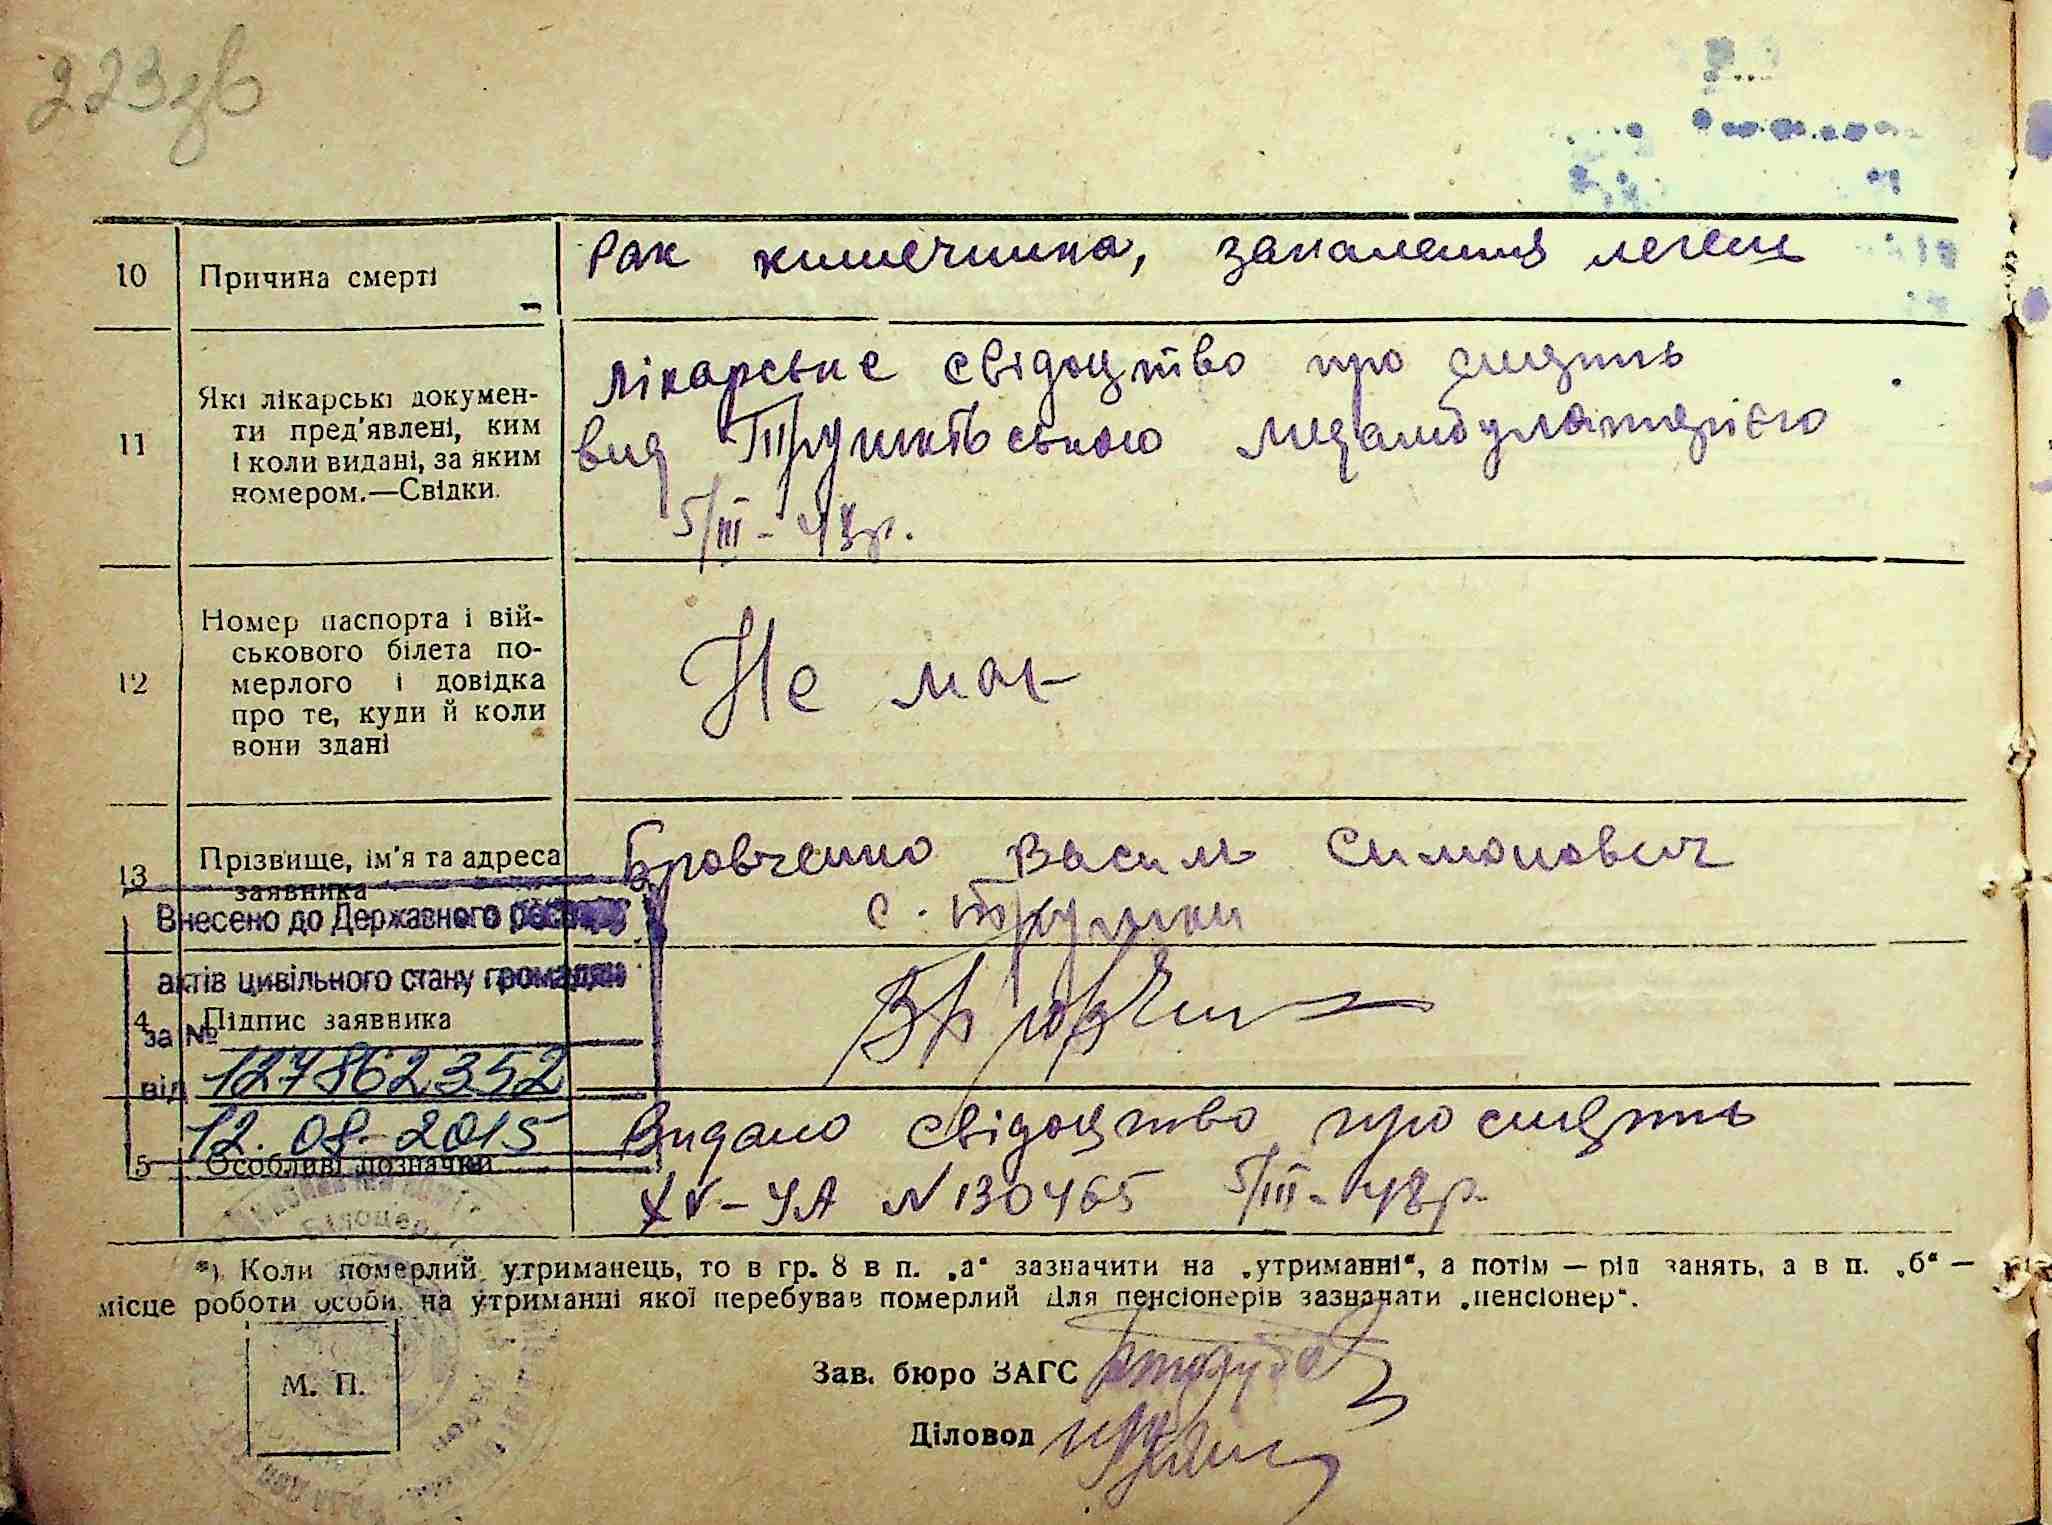 223зв
10 Причина смерті Рак кишечника, запалення легень
11 Які лікарські докумен-
ти пред'явлені, ким
і коли видані, за яким
номером.—Свідки.
Лікарське свідоцтво про смерть
вид Трушківською медамбулаторією
5/III-48р.
12 Номер паспорта і вій-
ськового білета по-
мерлого і довідка
про те, куди й коли
вони здані
Не має
13 Прізвище, ім'я та адреса
заявника
Бровченко Василь Симонович
с. Трушки
Внесено до Державного реєстру
актів цивільного стану громадян
за № 127862352
від 12.08.2015
4 Підпис заявника
5 Особливі позначки
Видано свідоцтво про смерть
XV-УА N130465 5/III-48р.
*) Коли померлий утриманець, то в гр. 8 в п. „а“ зазначити на „утриманні“, а потім — рід занять, а в п. „б“ —
місце роботи особи, на утриманні якої перебував померлий Для пенсіонерів зазначати „пенсіонер“.
М. П.
Зав. бюро ЗАГС
Діловод